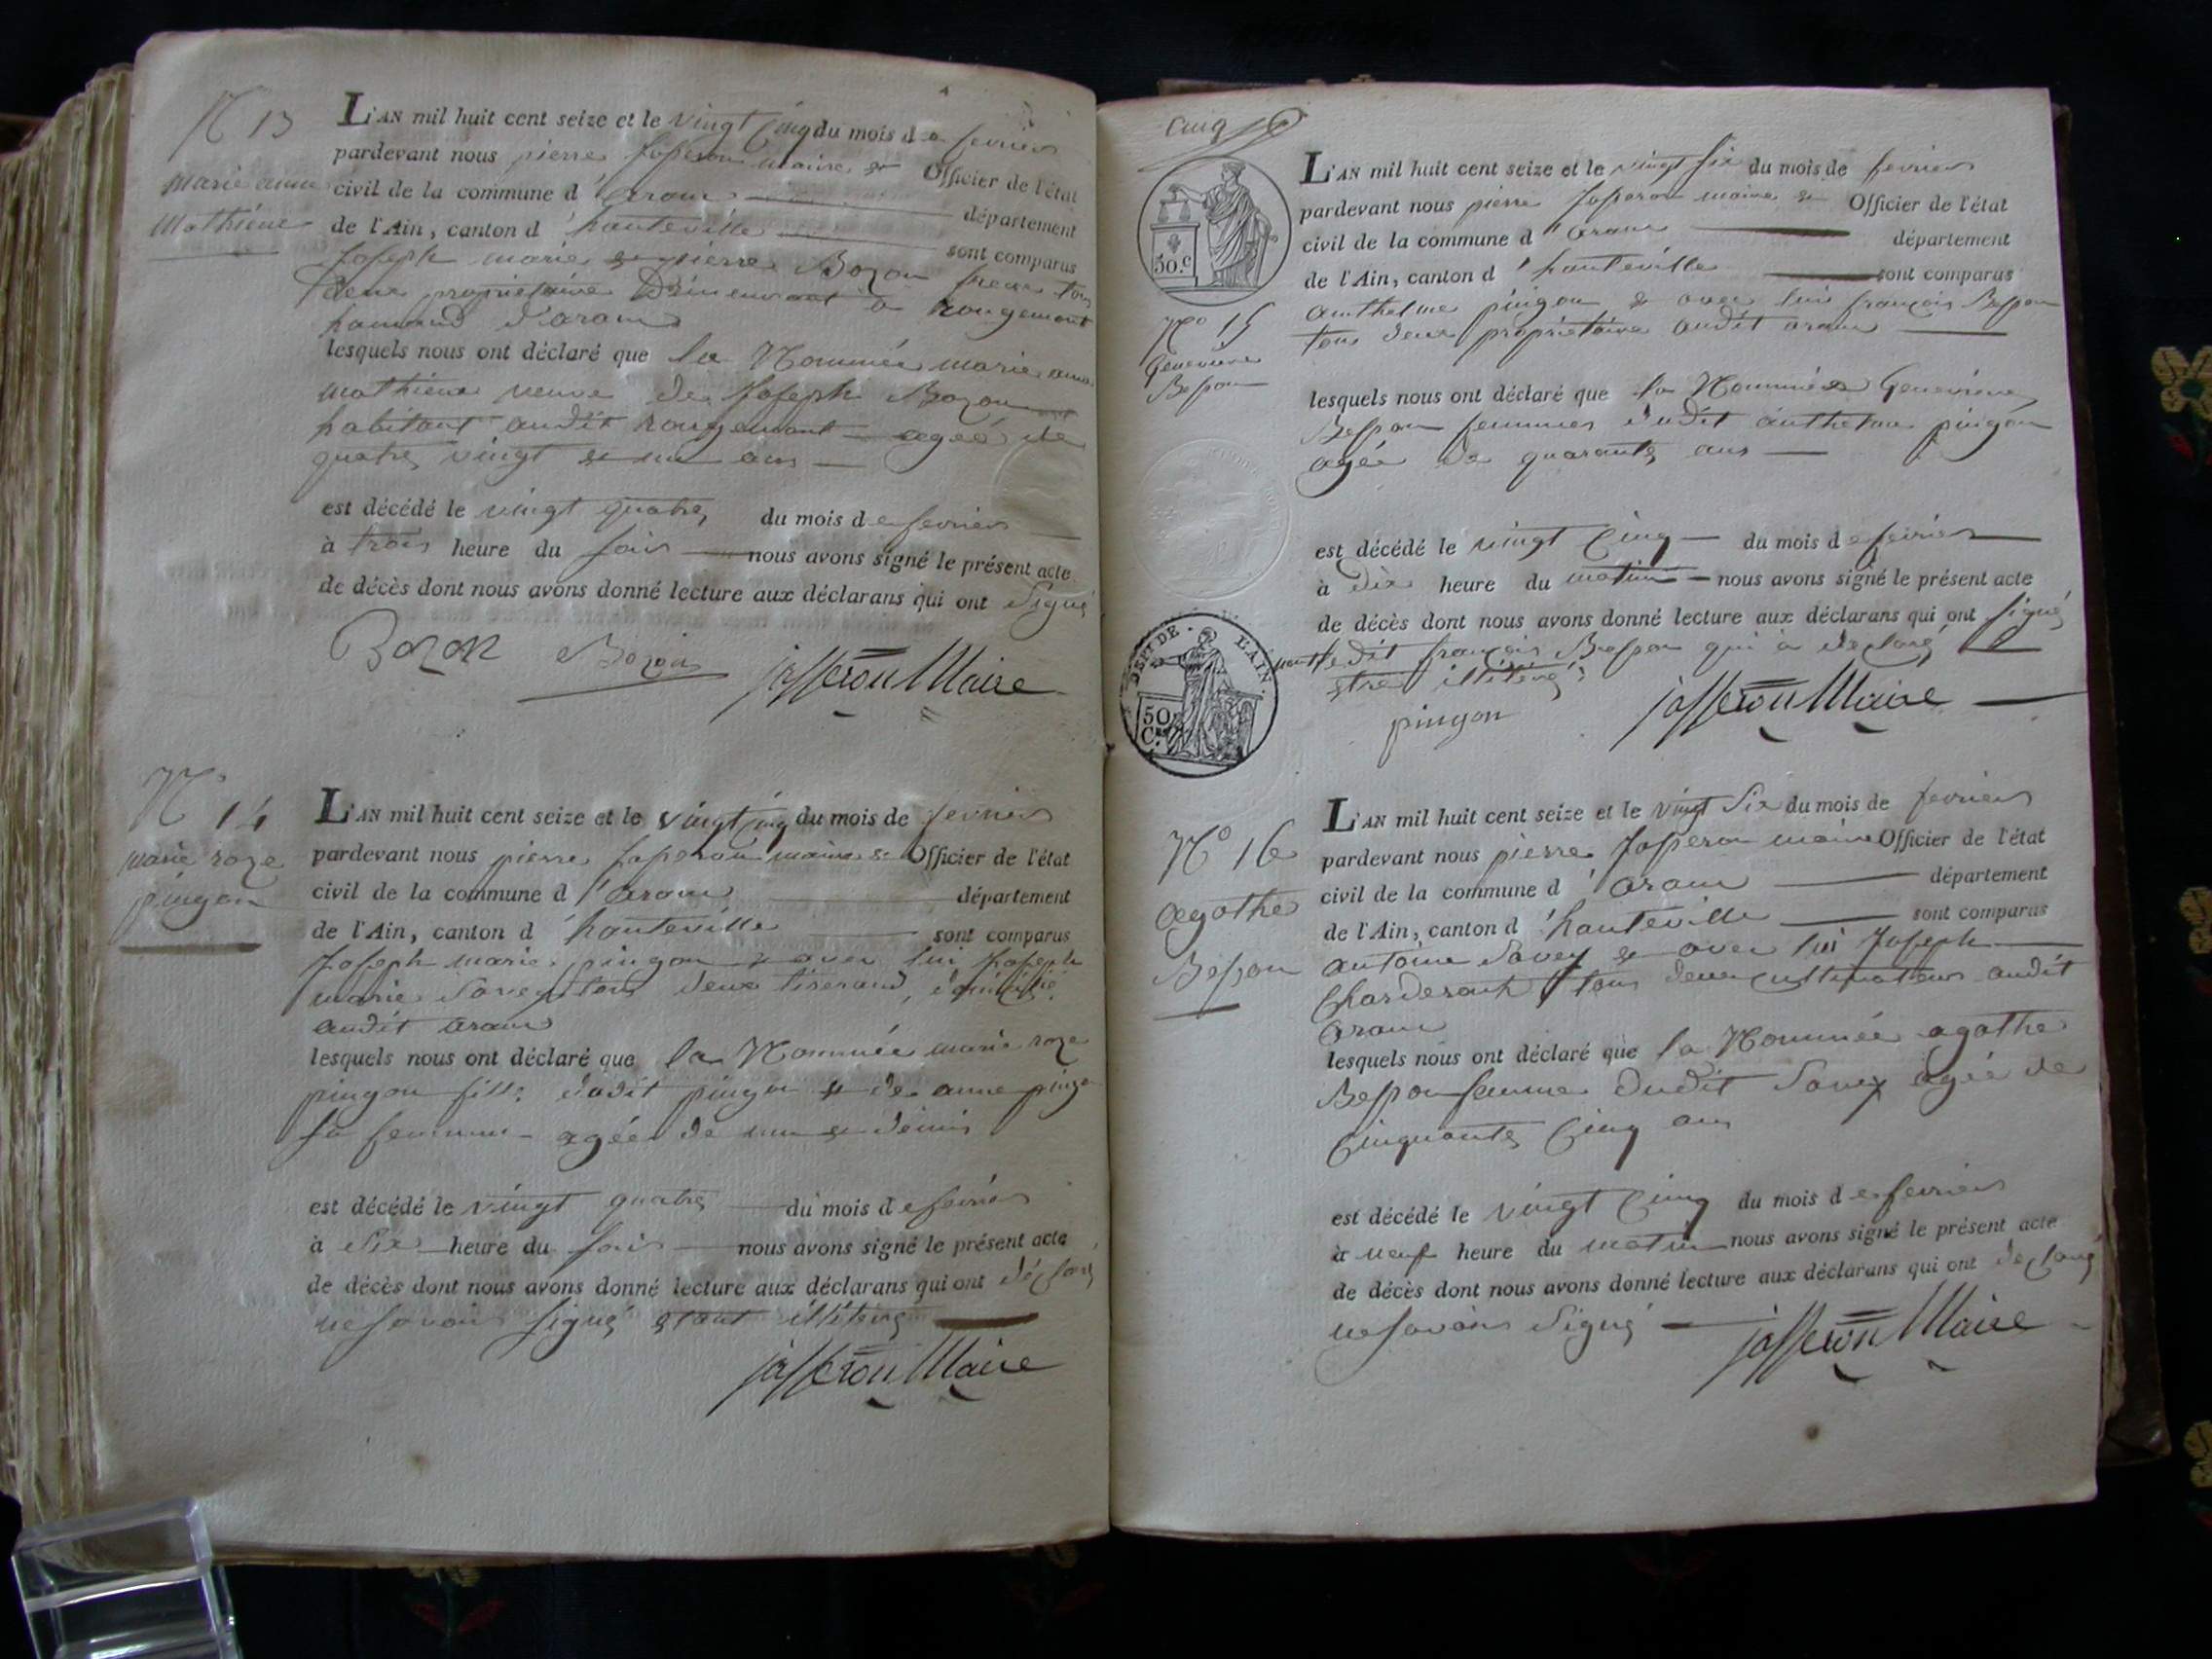 N 13
marie anne
Mathieux
L'AN mil huit cent seize et le vingt cinq du mois de fevrier
pardevant nous pierre Josseron maire & Officier de l'état
civil de la commune d'aranc département
de l'Ain, canton d'hauteville sont comparus
Joseph marie & pierre Bozon freres tous
deux proprietaire Demeurant a rougemont
hameau d'aranc
lesquels nous ont déclaré que la Nommée marie anne
mathieux veuve de Joseph Bozon
habitant audit rougemont agée de
quatre vingt & un ans
est décédé le vingt quatre du mois de fevrier
à trois heure du soir nous avons signé le présent acte
de décès dont nous avons donné lecture aux déclarans qui ont Signé
Bozon Bozon jasseron Maire
N° 14
marie roze
pingon
L'AN mil huit cent seize et le vingt cinq du mois de fevrier
pardevant nous pierre Josseron maire & Officier de l'état
civil de la commune d'aranc département
de l'Ain, canton d'hauteville sont comparus
Joseph marie pingon & avec lui Joseph
marie Savey tous deux tiserand, domicilié
audit aranc
lesquels nous ont déclaré que la Nommée marie roze
pingon fille dudit pingon & de anne pingon
sa femme agée de un & demis
est décédé le vingt quatre du mois de fevrier
à Six heure du soir nous avons signé le présent acte
de décès dont nous avons donné lecture aux déclarans qui ont déclaré
ne savoir signé etant illiteré
jasseron Maire
Cinq
50.c
N° 15
Genevieve
Besson
L'AN mil huit cent seize et le vingt six du mois de fevrier
pardevant nous pierre Josseron maire & Officier de l'état
civil de la commune d'aranc département
de l'Ain, canton d'hauteville sont comparus
anthelme pingon & avec lui françois Besson
tous deux propriétaire audit aranc
lesquels nous ont déclaré que la Nommée Genevieve
Besson femme dudit anthelme pingon
agée de quarante ans
est décédé le vingt cinq du mois de fevrier
à dix heure du matin nous avons signé le présent acte
de décès dont nous avons donné lecture aux déclarans qui ont signé
ledit françois Besson qui à declaré
etre illiteré
pingon jasseron Maire
DEP.T DE L'AIN.
50 C.
N° 16
agathe
Besson
L'AN mil huit cent seize et le vingt Six du mois de fevrier
pardevant nous pierre Josseron maire Officier de l'état
civil de la commune d'aranc département
de l'Ain, canton d'hauteville sont comparus
antoine Savey & avec lui Joseph
tous deux cultivateur audit
aranc
lesquels nous ont déclaré que la Nommée agathe
Besson femme dudit Savey agée de
Cinquante Cinq ans
est décédé le vingt Cinq du mois de fevrier
à neuf heure du matin nous avons signé le présent acte
de décès dont nous avons donné lecture aux déclarans qui ont declaré
ne savoir Signé jasseron Maire